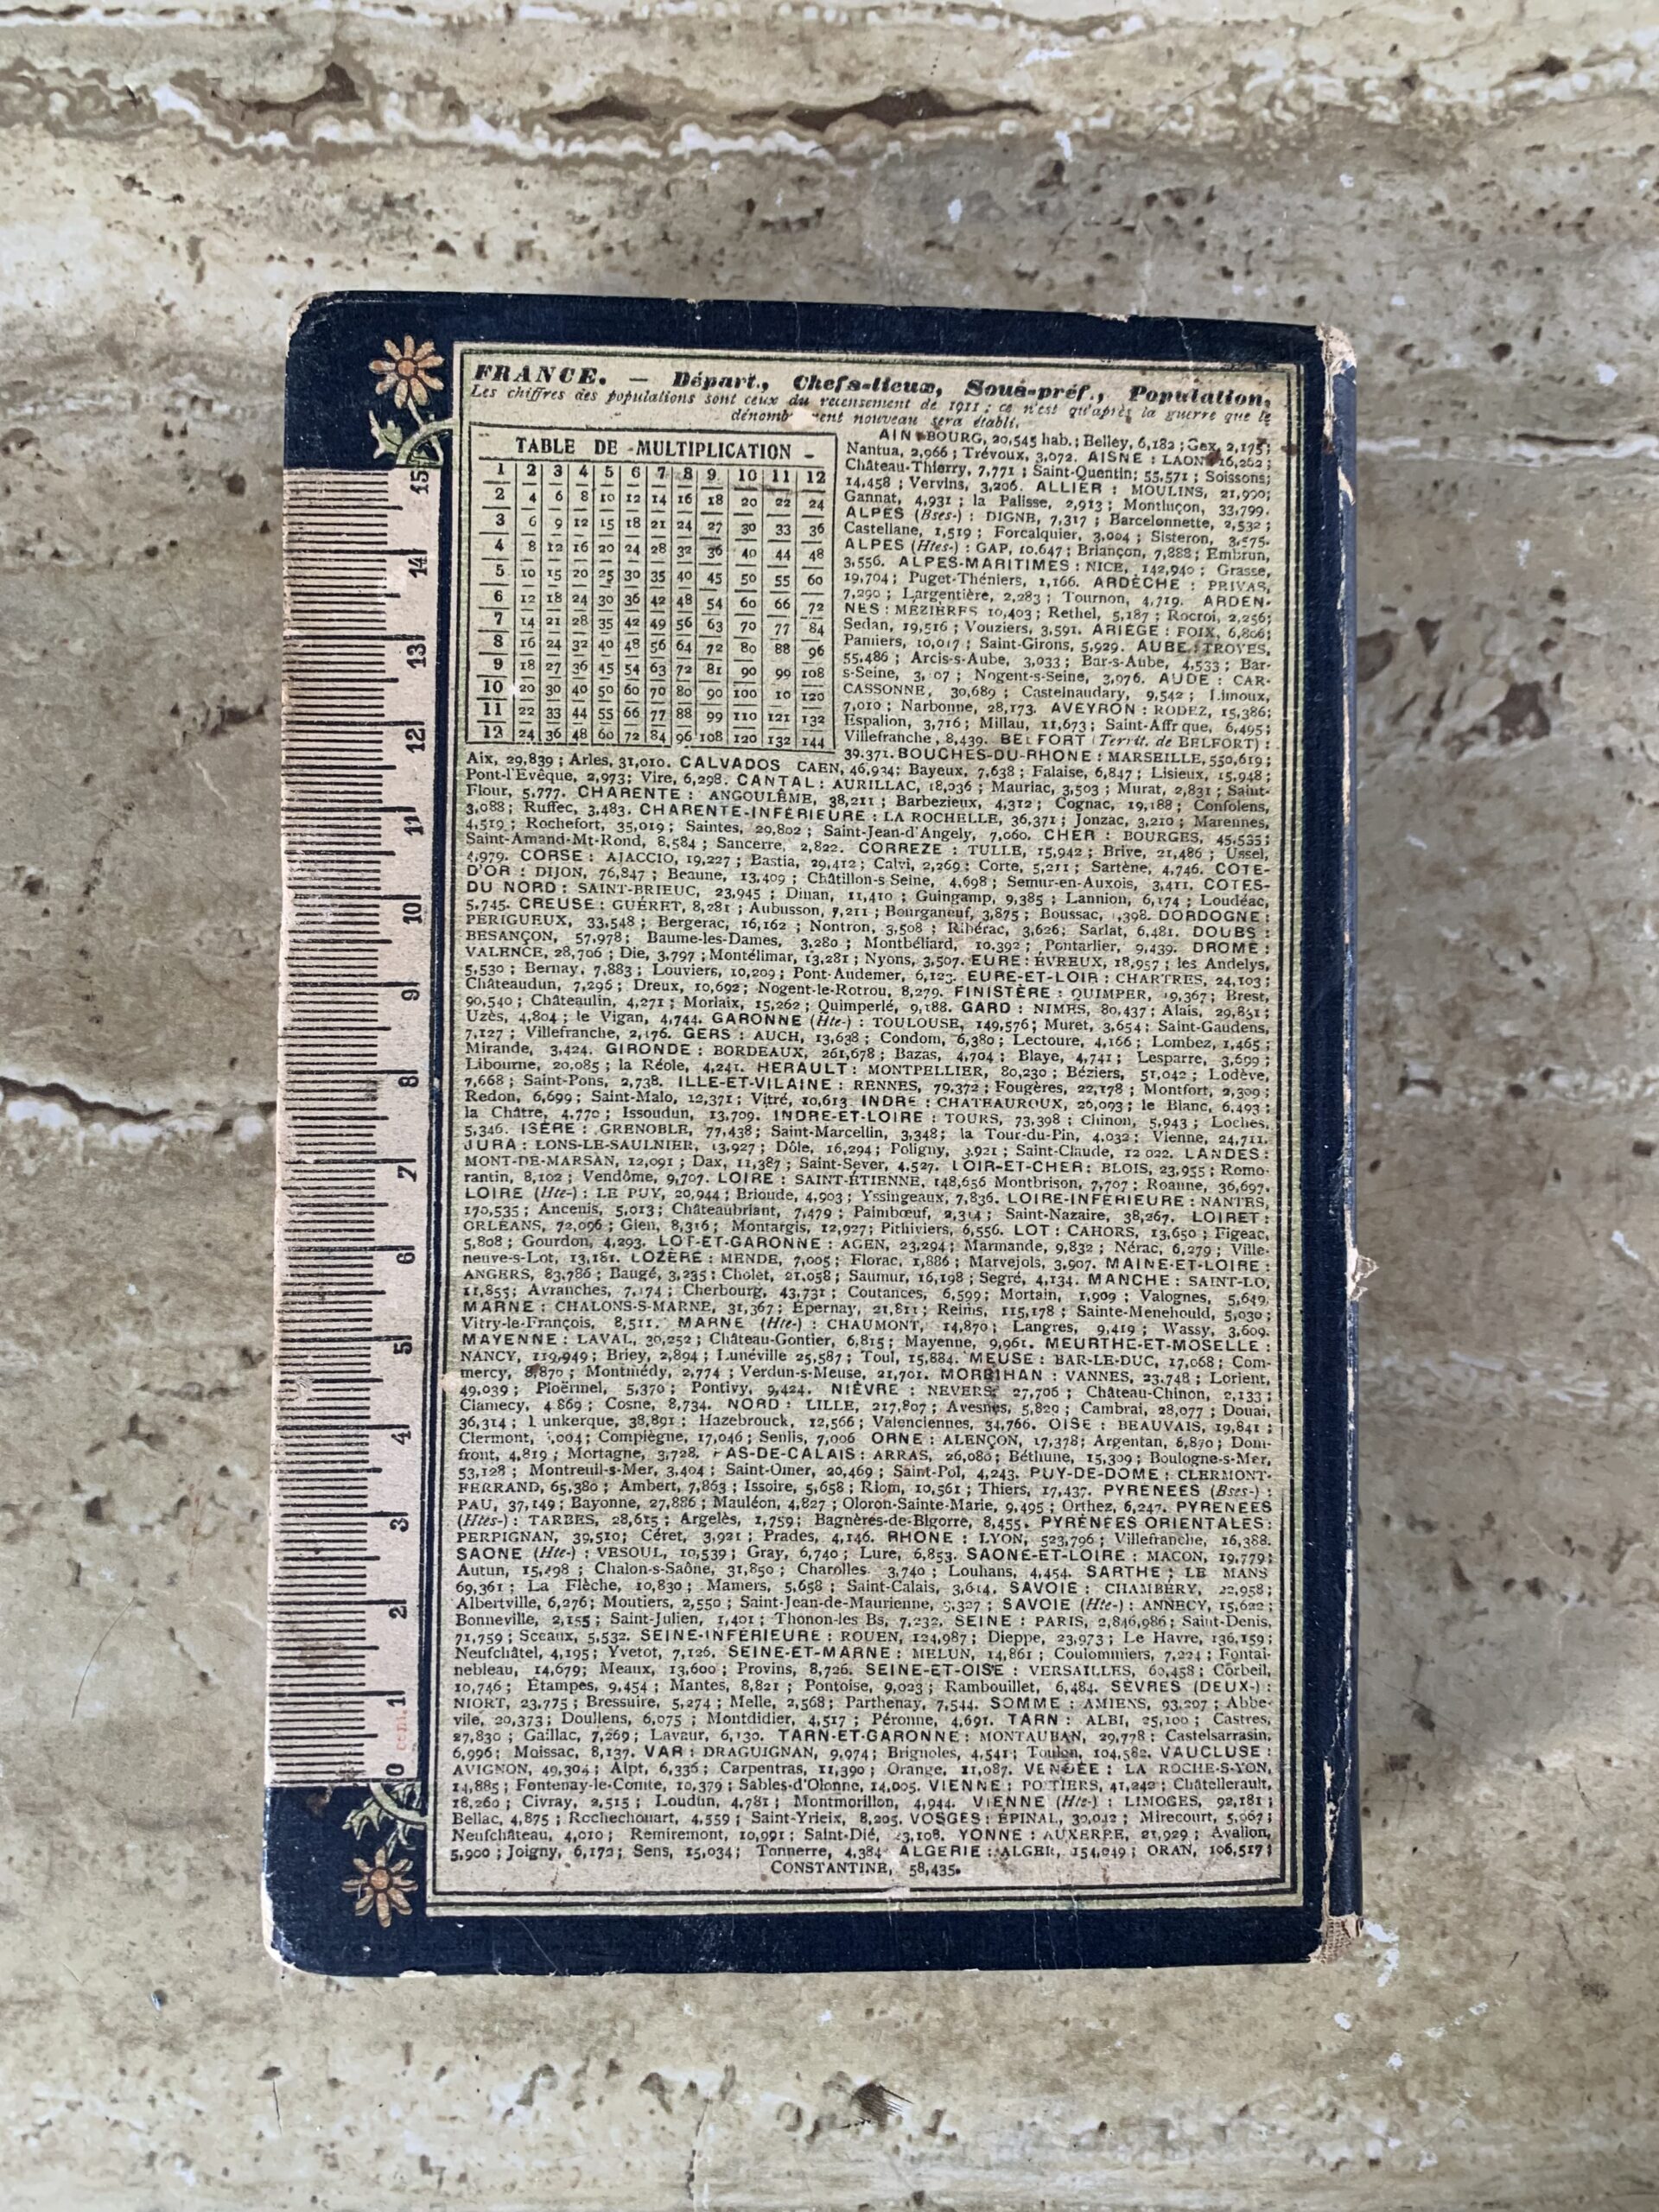 FRANCE. — Départ., Chefs-lieux, Sous-préf., Population.
Les chiffres des populations sont ceux du recensement de 1911 ; ce n'est qu'après la guerre que le
nouveau sera établi.
TABLE DE MULTIPLICATION
1 2 3 4 5 6 7 8 9 10 11 12
2 4 6 8 10 12 14 16 18 20 22 24
3 6 9 12 15 18 21 24 27 30 33 36
4 8 12 16 20 24 28 32 36 40 44 48
5 10 15 20 25 30 35 40 45 50 55 60
6 12 18 24 30 36 42 48 54 60 66 72
7 14 21 28 35 42 49 56 63 70 77 84
8 16 24 32 40 48 56 64 72 80 88 96
9 18 27 36 45 54 63 72 81 90 99 108
10 20 30 40 50 60 70 80 90 100 10 120
11 22 33 44 55 66 77 88 99 110 121 132
12 24 36 48 60 72 84 96 108 120 132 144
AIN : BOURG, 20,545 hab.; Belley, 6,182 ; Gex, 2,175;
Nantua, 2,966 ; Trévoux, 3,072. AISNE : LAON, 16,262 ;
Château-Thierry, 7,771 ; Saint-Quentin; 55,571 ; Soissons;
14,458 ; Vervins, 3,206. ALLIER : MOULINS, 21,990;
Gannat, 4,931 ; la Palisse, 2,913 ; Montluçon, 33,799.
ALPES (Bses-) : DIGNE, 7,317 ; Barcelonnette, 2,532 ;
Castellane, 1,519 ; Forcalquier, 3,004 ; Sisteron, 3,575.
ALPES (Htes-) : GAP, 10,647 ; Briançon, 7,888 ; Embrun,
3,556. ALPES-MARITIMES : NICE, 142,940 ; Grasse,
19,704 ; Puget-Théniers, 1,166. ARDÈCHE : PRIVAS,
7,290 ; Largentière, 2,283 ; Tournon, 4,719. ARDEN-
NES : MÉZIÈRES 10,403 ; Rethel, 5,187 ; Rocroi, 2,256;
Sedan, 19,516 ; Vouziers, 3,591. ARIÈGE : FOIX, 6,806;
Pamiers, 10,017 ; Saint-Girons, 5,929. AUBE : TROYES,
55,486 ; Arcis-s-Aube, 3,033 ; Bar-s-Aube, 4,533 ; Bar-
s-Seine, 3, 07 ; Nogent-s-Seine, 3,976. AUDE : CAR-
CASSONNE, 30,689 ; Castelnaudary, 9,542 ; Limoux,
7,010 ; Narbonne, 28,173. AVEYRON : RODEZ, 15,386;
Espalion, 3,716 ; Millau, 11,673 ; Saint-Affr que, 6,495;
Villefranche, 8,439. BELFORT (Territ. de BELFORT) :
39.371. BOUCHES-DU-RHONE : MARSEILLE, 550,619 ;
Aix, 29,839 ; Arles, 31,010. CALVADOS CAEN, 46,934; Bayeux, 7,638 ; Falaise, 6,847 ; Lisieux, 15,948 ;
Pont-l'Evêque, 2,973; Vire, 6,298. CANTAL : AURILLAC, 18,036 ; Mauriac, 3,503 ; Murat, 2,831 ; Saint-
Flour, 5,777. CHARENTE : ANGOULÊME, 38,211 ; Barbezieux, 4,312 ; Cognac, 19,188 ; Confolens,
3,088; Ruffec, 3,483. CHARENTE-INFÉRIEURE : LA ROCHELLE, 36,371 ; Jonzac, 3,210 ; Marennes,
4,519 ; Rochefort, 35,019 ; Saintes, 29,802 ; Saint-Jean-d'Angely, 7,060. CHER : BOURGES, 45,535 ;
Saint-Amand-Mt-Rond, 8,584 ; Sancerre, 2,822. CORREZE : TULLE, 15,942 ; Brive, 21,486 ; Ussel,
4,979. CORSE : AJACCIO, 19,227 ; Bastia, 29,412 ; Calvi, 2,269 ; Corte, 5,211 ; Sartène, 4,746. COTE-
D'OR : DIJON, 76,847 ; Beaune, 13,409 ; Châtillon-s Seine, 4,698 ; Semur-en-Auxois, 3,411. COTES-
DU NORD : SAINT-BRIEUC, 23,945 ; Dinan, 11,410 ; Guingamp, 9,385 ; Lannion, 6,174 ; Loudéac,
5,745. CREUSE : GUÉRET, 8,281 ; Aubusson, 7,211 ; Bourganeuf, 3,875 ; Boussac, ,398. DORDOGNE :
PÉRIGUEUX, 33,548 ; Bergerac, 16,162 ; Nontron, 3,508 ; Ribérac, 3,626; Sarlat, 6,481. DOUBS :
BESANÇON, 57,978; Baume-les-Dames, 3,280 ; Montbéliard, 10,392 ; Pontarlier, 9,439. DROME :
VALENCE, 28,706 ; Die, 3,797 ; Montélimar, 13,281 ; Nyons, 3,507. EURE : ÉVREUX, 18,957 ; les Andelys,
5,530 ; Bernay, 7,883 ; Louviers, 10,209 ; Pont-Audemer, 6,123. EURE-ET-LOIR : CHARTRES, 24,103 ;
Châteaudun, 7,296 ; Dreux, 10,692 ; Nogent-le-Rotrou, 8,279. FINISTÈRE : QUIMPER, 19,367 ; Brest,
90,540 ; Châteaulin, 4,271 ; Morlaix, 15,262 ; Quimperlé, 9,188. GARD : NIMES, 80,437 ; Alais, 29,831 ;
Uzès, 4,804 ; le Vigan, 4,744. GARONNE (Hte-) : TOULOUSE, 149,576; Muret, 3,654 ; Saint-Gaudens,
7,127 ; Villefranche, 2,176. GERS : AUCH, 13,638 ; Condom, 6,380 ; Lectoure, 4,166 ; Lombez, 1,465 ;
Mirande, 3,424. GIRONDE : BORDEAUX, 261,678 ; Bazas, 4,704 ; Blaye, 4,741 ; Lesparre, 3,699 ;
Libourne, 20,085 ; la Réole, 4,241. HERAULT : MONTPELLIER, 80,230 ; Béziers, 51,042 ; Lodève,
7,668 ; Saint-Pons, 2,738. ILLE-ET-VILAINE : RENNES, 79,372 ; Fougères, 22,178 ; Montfort, 2,309 ;
Redon, 6,699 ; Saint-Malo, 12,371 ; Vitré, 10,613 INDRE : CHATEAUROUX, 26,093 ; le Blanc, 6,493 ;
la Châtre, 4,770 ; Issoudun, 13,709. INDRE-ET-LOIRE : TOURS, 73,398 ; Chinon, 5,943 ; Loches,
5,346. ISÈRE : GRENOBLE, 77,438; Saint-Marcellin, 3,348; la Tour-du-Pin, 4,032 ; Vienne, 24,711.
JURA : LONS-LE-SAULNIER, 13,927 ; Dôle, 16,294 ; Poligny, 3,921 ; Saint-Claude, 12 022. LANDES :
MONT-DE-MARSAN, 12,091 ; Dax, 11,387 ; Saint-Sever, 4,527. LOIR-ET-CHER : BLOIS, 23,955 ; Romo-
rantin, 8,102 ; Vendôme, 9,707. LOIRE : SAINT-ÉTIENNE, 148,656 Montbrison, 7,707 ; Roanne, 36,697.
LOIRE (Hte-) : LE PUY, 20,944 ; Brioude, 4,903 ; Yssingeaux, 7,836. LOIRE-INFÉRIEURE : NANTES,
170,535 ; Ancenis, 5,013 ; Châteaubriant, 7,479 ; Paimbœuf, 2,314 ; Saint-Nazaire, 38,267. LOIRET :
ORLÉANS, 72,096 ; Gien, 8,316 ; Montargis, 12,927; Pithiviers, 6,556. LOT : CAHORS, 13,650 ; Figeac,
5,808 ; Gourdon, 4,293. LOT-ET-GARONNE : AGEN, 23,294 ; Marmande, 9,832 ; Nérac, 6,279 ; Ville-
neuve-s-Lot, 13,181. LOZÈRE : MENDE, 7,005 ; Florac, 1,886 ; Marvejols, 3,907. MAINE-ET-LOIRE :
ANGERS, 83,786 ; Baugé, 3,235 ; Cholet, 21,058 ; Saumur, 16,198 ; Segré, 4,134. MANCHE : SAINT-LO,
11,855; Avranches, 7,174 ; Cherbourg, 43,731 ; Coutances, 6,599; Mortain, 1,909 ; Valognes, 5,649.
MARNE : CHALONS-S-MARNE, 31,367 ; Epernay, 21,811 ; Reims, 115,178 ; Sainte-Menehould, 5,030 ;
Vitry-le-François, 8,511. MARNE (Hte-) : CHAUMONT, 14,870 ; Langres, 9,419 ; Wassy, 3,609.
MAYENNE : LAVAL, 30,252 ; Château-Gontier, 6,815 ; Mayenne, 9,961. MEURTHE-ET-MOSELLE :
NANCY, 119,949 ; Briey, 2,894 ; Lunéville 25,587 ; Toul, 15,884. MEUSE : BAR-LE-DUC, 17,068 ; Com-
mercy, 8,870 ; Montmédy, 2,774 ; Verdun-s-Meuse, 21,701. MORBIHAN : VANNES, 23,748 ; Lorient,
49,039 ; Ploërmel, 5,370 ; Pontivy, 9,424. NIÈVRE : NEVERS, 27,706 ; Château-Chinon, 2,133 ;
Clamecy, 4 869 ; Cosne, 8,734. NORD : LILLE, 217,807 ; Avesnes, 5,820 ; Cambrai, 28,077 ; Douai,
36,314 ; unkerque, 38,891 ; Hazebrouck, 12,566 ; Valenciennes, 34,766. OISE : BEAUVAIS, 19,841 ;
Clermont, ,004 ; Compiègne, 17,046 ; Senlis, 7,006 ORNE : ALENÇON, 17,378; Argentan, 6,870 ; Dom-
front, 4,819 ; Mortagne, 3,728. PAS-DE-CALAIS : ARRAS, 26,080 ; Béthune, 15,309 ; Boulogne-s-Mer,
53,128 ; Montreuil-s-Mer, 3,404 ; Saint-Omer, 20,469 ; Saint-Pol, 4,243. PUY-DE-DOME : CLERMONT-
FERRAND, 65,380 ; Ambert, 7,863 ; Issoire, 5,658 ; Riom, 10,561 ; Thiers, 17,437. PYRÉNÉES (Bses-) :
PAU, 37,149 ; Bayonne, 27,886 ; Mauléon, 4,827 ; Oloron-Sainte-Marie, 9,495 ; Orthez, 6,247. PYRÉNÉES
(Htes-) : TARBES, 28,615 ; Argelès, 1,759 ; Bagnères-de-Bigorre, 8,455. PYRÉNÉES ORIENTALES :
PERPIGNAN, 39,510; Céret, 3,921 ; Prades, 4,146. RHONE : LYON, 523,796 ; Villefranche, 16,388.
SAONE (Hte-) : VESOUL, 10,539 ; Gray, 6,740 ; Lure, 6,853. SAONE-ET-LOIRE : MACON, 19,779 ;
Autun, 15,498 ; Chalon-s-Saône, 31,850 ; Charolles 3,740 ; Louhans, 4,454. SARTHE ; LE MANS
69,361 ; La Flèche, 10,830 ; Mamers, 5,658 ; Saint-Calais, 3,614. SAVOIE : CHAMBÉRY, 22,958 ;
Albertville, 6,276; Moutiers, 2,550 ; Saint-Jean-de-Maurienne, 3,327 ; SAVOIE (Hte-) : ANNECY, 15,622 ;
Bonneville, 2,155 ; Saint-Julien, 1,401 ; Thonon-les Bs, 7,232. SEINE : PARIS, 2,846,986; Saint-Denis,
71,759 ; Sceaux, 5,532. SEINE-INFÉRIEURE : ROUEN, 124,987 ; Dieppe, 23,973 ; Le Havre, 136,159 ;
Neufchâtel, 4,195 ; Yvetot, 7,126. SEINE-ET-MARNE : MELUN, 14,861 ; Coulommiers, 7,224 ; Fontai-
nebleau, 14,679; Meaux, 13,600 ; Provins, 8,726. SEINE-ET-OISE : VERSAILLES, 60,458 ; Corbeil,
10,746 ; Étampes, 9,454 ; Mantes, 8,821 ; Pontoise, 9,023 ; Rambouillet, 6,484. SÈVRES (DEUX-) :
NIORT, 23,775 ; Bressuire, 5,274 ; Melle, 2,568; Parthenay, 7,544. SOMME : AMIENS, 93,207 ; Abbe-
vile, 20,373; Doullens, 6,075 ; Montdidier, 4,517 ; Péronne, 4,691. TARN : ALBI, 25,100 ; Castres,
27,830 ; Gaillac, 7,269 ; Lavaur, 6,130. TARN-ET-GARONNE : MONTAUBAN, 29,778 ; Castelsarrasin,
6,996; Moissac, 8,137. VAR : DRAGUIGNAN, 9,974; Brignoles, 4,541 ; Toulon, 104,582. VAUCLUSE :
AVIGNON, 49,304 ; Alpt, 6,336 ; Carpentras, 11,390 ; Orange, 11,087. VENDÉE : LA ROCHE-S-YON,
14,885 ; Fontenay-le-Comte, 10,379 ; Sables-d'Olonne, 14,005. VIENNE : POITIERS, 41,242 ; Châtellerault,
18,260 ; Civray, 2,515 ; Loudun, 4,781 ; Montmorillon, 4,944. VIENNE (Hte-) : LIMOGES, 92,181 ;
Bellac, 4,875 ; Rochechouart, 4,559 ; Saint-Yrieix, 8,205. VOSGES : ÉPINAL, 30,042 ; Mirecourt, 5,067 ;
Neufchâteau, 4,010 ; Remiremont, 10,991 ; Saint-Dié, 23,108. YONNE : AUXERRE, 21,929 ; Avallon,
5,900 ; Joigny, 6,172 ; Sens, 15,034 ; Tonnerre, 4,384 ALGERIE : ALGER, 154,049 ; ORAN, 106,517 ;
CONSTANTINE, 58,435.
15
14
13
12
11
10
9
8
7
6
5
4
3
2
1
0 cent.